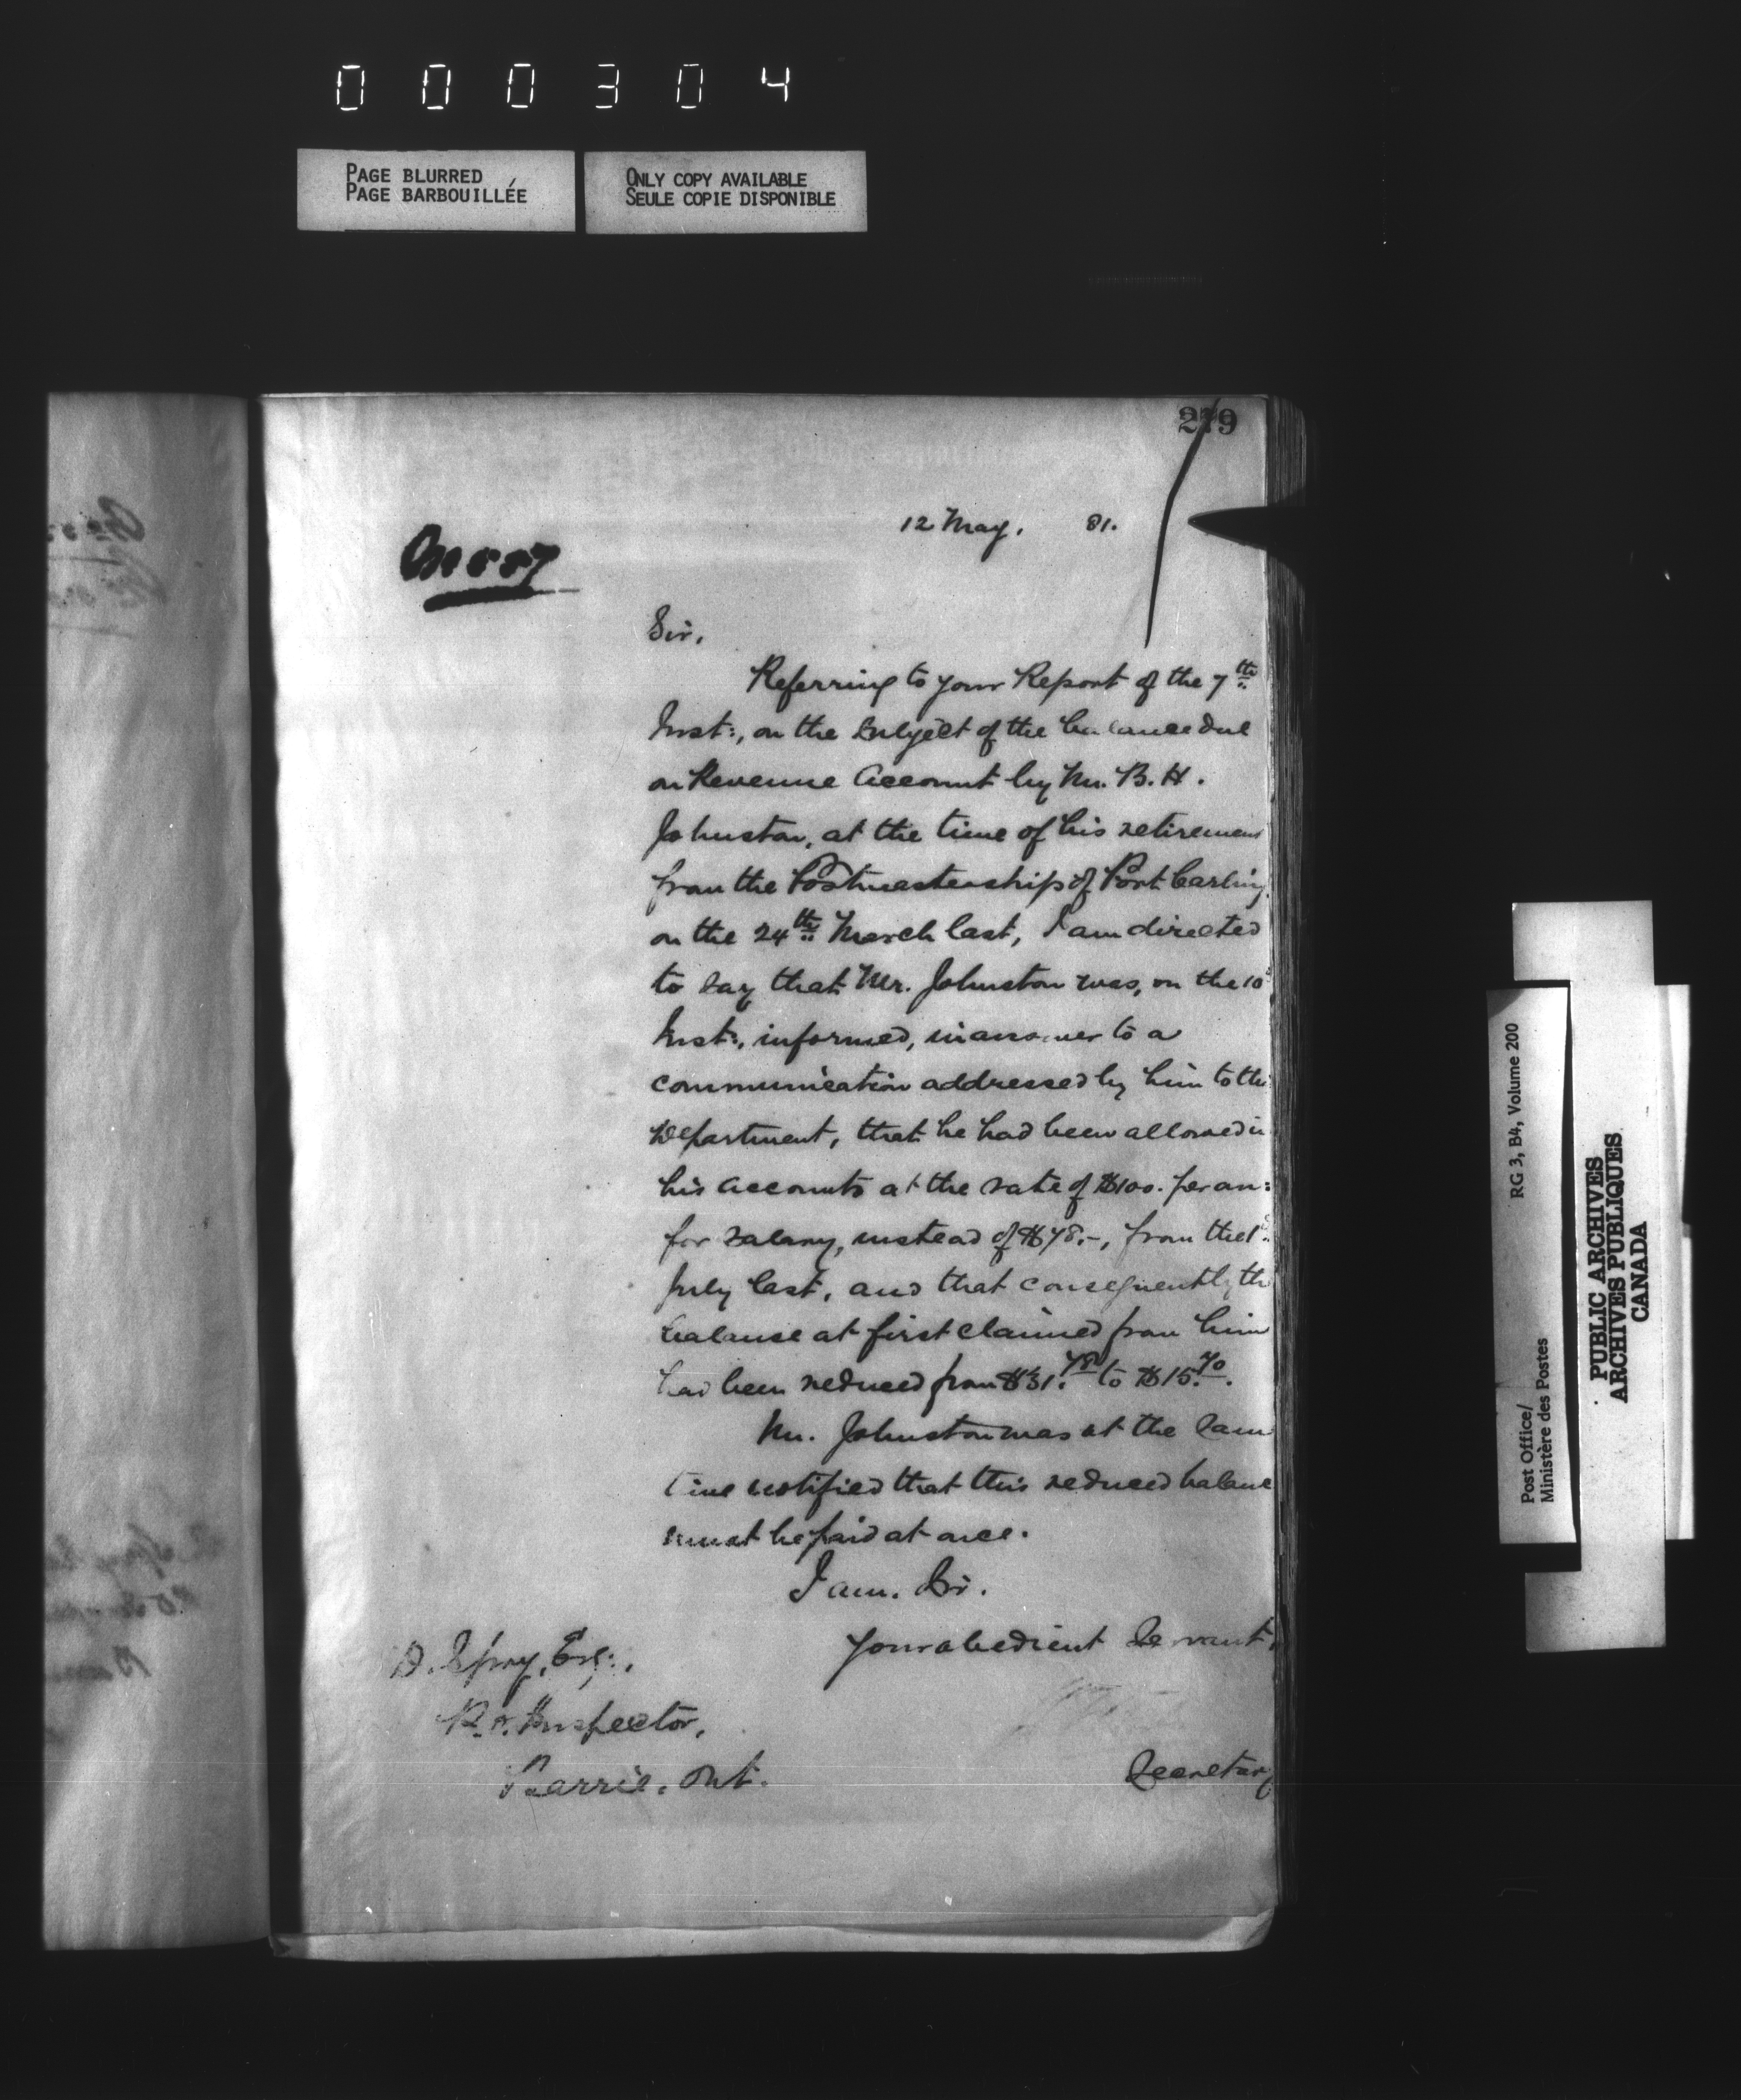 000304
PAGE BLURRED
PAGE BARBOUILLÉE
ONLY COPY AVAILABLE
SEULE COPIE DISPONIBLE
279
12 May, 81.
Sir,
Referring to your Report of the 7th
Inst:, on the subject of the balance due
on Revenue Account by Mr. B. H.
Johnston, at the time of his retirement
from the Postmastership of Port Carling
on the 24th March last, I am directed
to say that Mr. Johnston was, on the 10
Inst:, informed, in answer to a
communication addressed by him to the
Department, that he had been allowed in
his accounts at the rate of $100. per an:
for salary, instead of $78.-, from the 1
July last, and that consequently the
balance at first claimed from him
had been reduced from $31.78 to $15.70.
Mr. Johnston was at the same
time notified that this reduced balance
must be paid at once.
I am, Sir.
Your obedient Servant,
Secretary
D. Spry, Esq:,
P.O. Inspector,
Barrie, Ont.
RG 3, B4, Volume 200
Post Office/
Ministère des Postes
PUBLIC ARCHIVES
ARCHIVES PUBLIQUES
CANADA